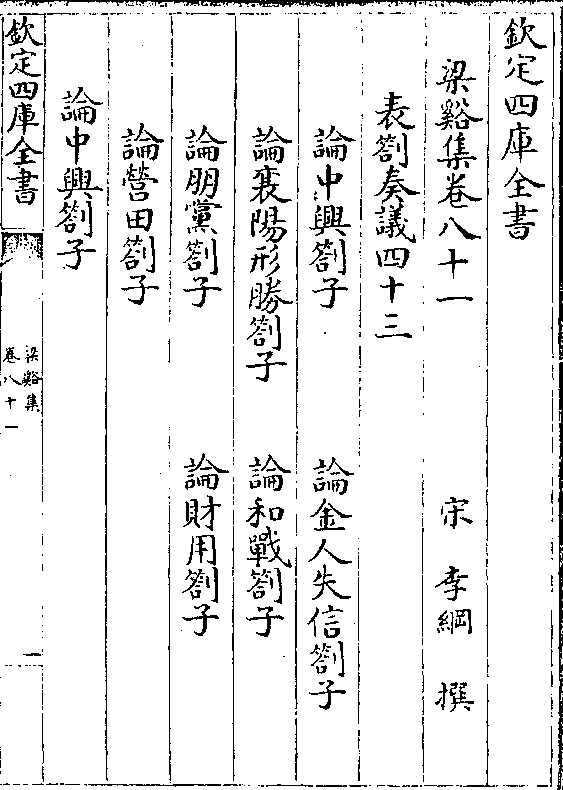 欽定四庫全書
梁谿集卷八十一
宋 李綱 撰
表劄奏議四十三
論中興劄子 論金人失信劄子
論襄陽形勝劄子 論和戰劄子
論朋黨劄子 論財用劄子
論營田劄子
論中興劄子
欽定四庫全書
梁谿集
卷八十一
一